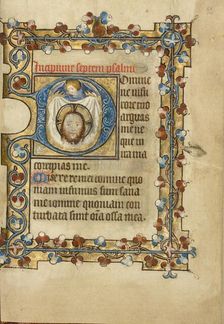 Incipiunt septem psalmi
Domine
ne in fu
rore tuo
arguas
me ne
que in
ira tua
corripias me.
Miserere mei domine quo
niam infirmus sum sana
me domine quoniam con
turbata sunt oīa ossa mea.